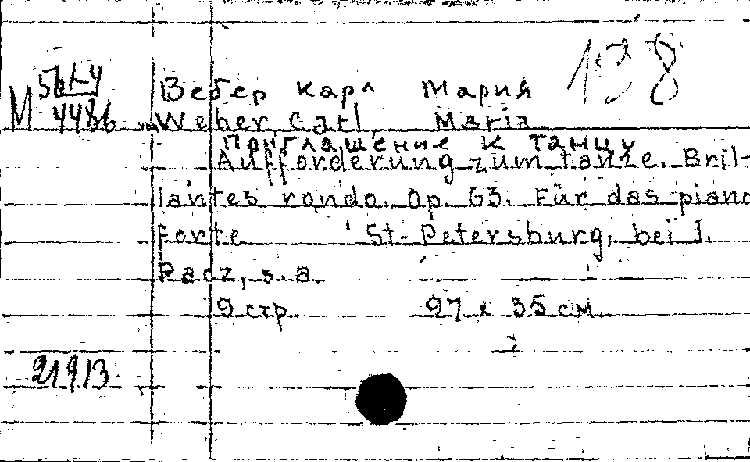 138
Вебер Карл Мария
М 4486 Weber, Carl Maria
Приглашение к танцу
Aufforderung zum tanze. Bril-
lantes rondo. Op. 63. Für das piano
forte St-Petersburg, bei J.
s. a.
9 стр. 27 x 35 см.
21913